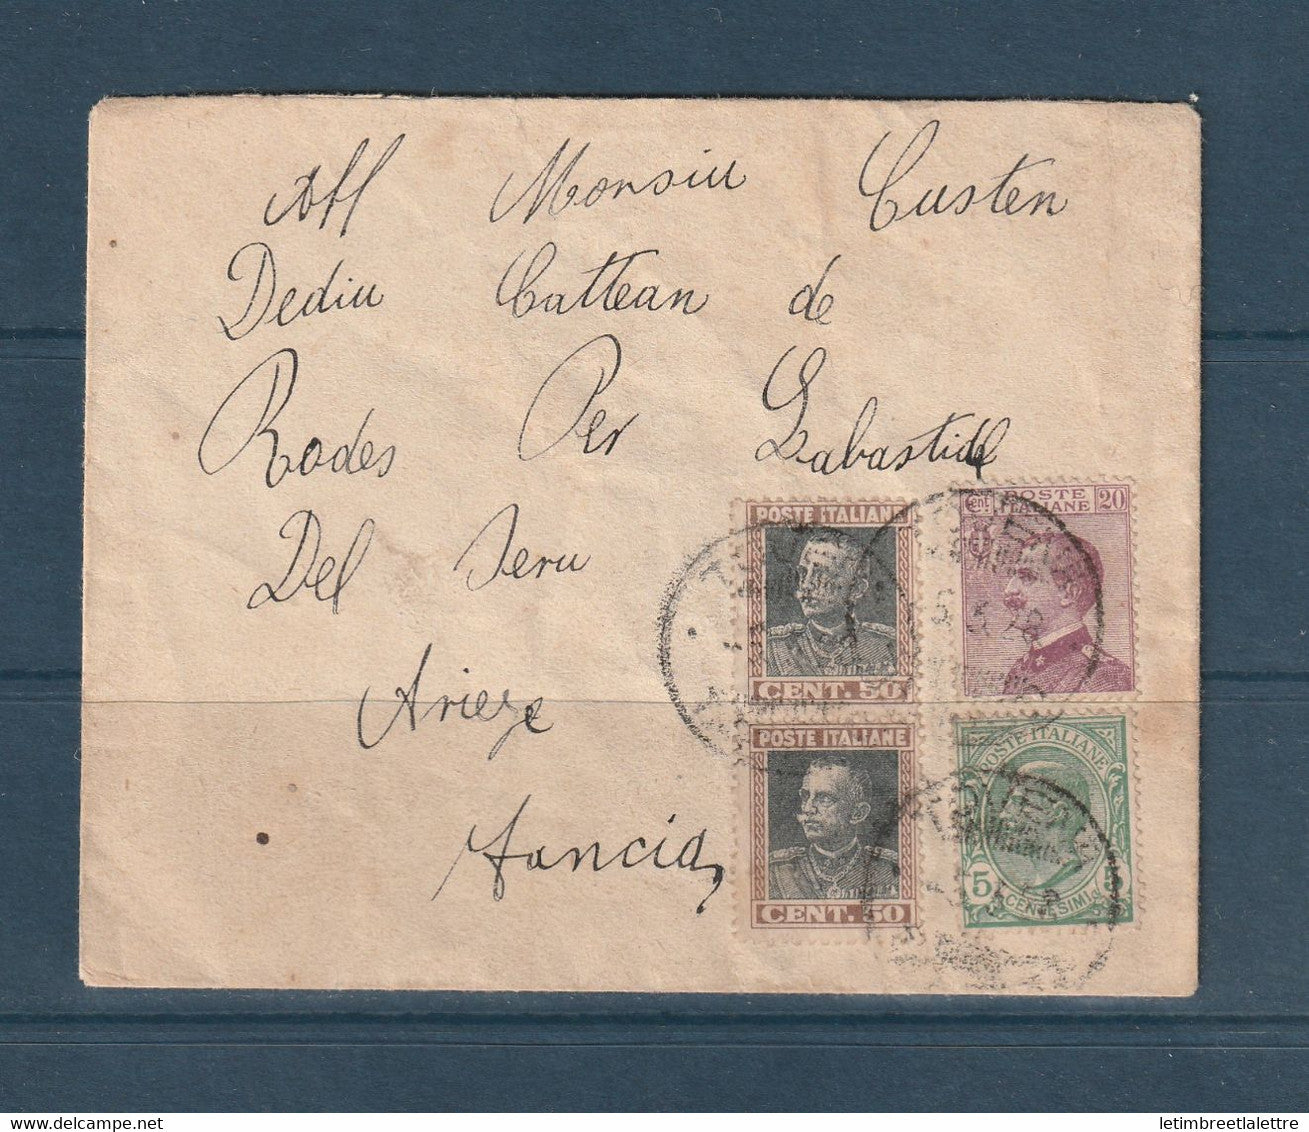 All Monsiu Custen
Dediu Cattean de
Rodes Per Labastide
Del Seru
Ariege
Francia
POSTE ITALIANE
CENT. 50
POSTE ITALIANE
CENT. 50
Cent. POSTE ITALIANE 20
POSTE ITALIANE
5 CENTESIMI 5
letimbreetlalettre